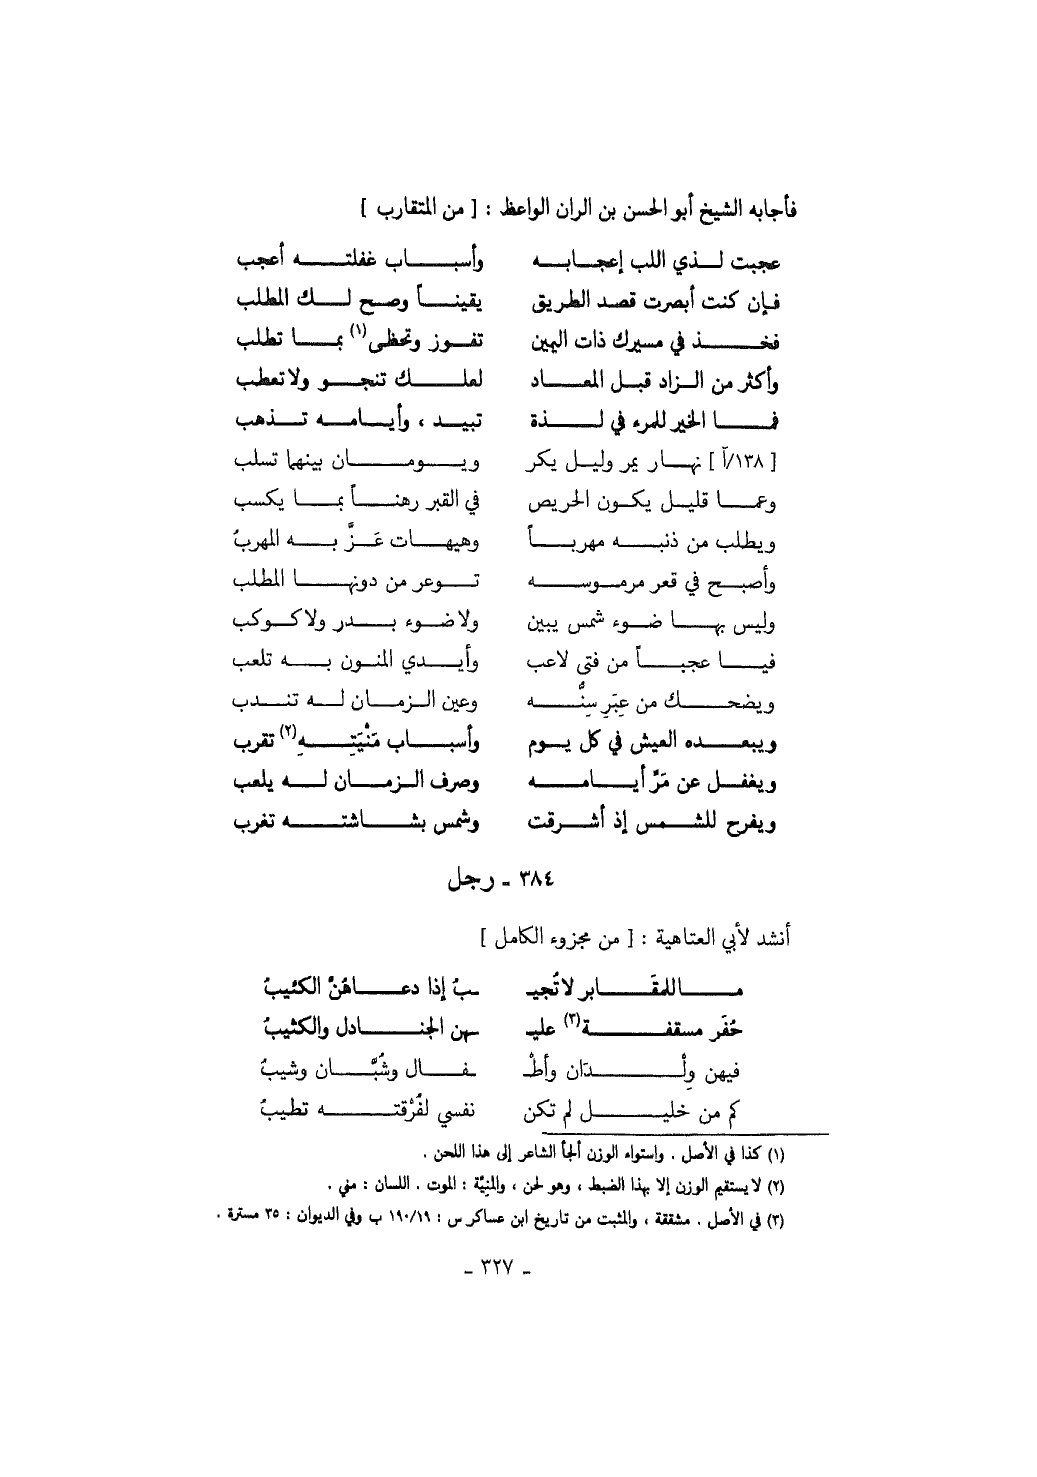 فأجابه الشيخ أبو الحسن بن الران الواعظ : [ من المتقارب ]
عجبت لذي اللب إعجابه وأسباب غفلته أعجب
فإن كنت أبصرت قصد الطريق يقيناً وصح لك المطلب
فخذ في مسيرك ذات اليمين تفوز وتحظى(١) بما تطلب
وأكثر من الزاد قبل المعاد لعلك تنجو ولا تعطب
فما الخير للمرء في لذة تبيد ، وأيامه تذهب
[ ١٣٨/آ ] نهار يمر وليل يكر ويومان بينهما تسلب
وعما قليل يكون الحريص في القبر رهناً بما يكسب
ويطلب من ذنبه مهرباً وهيهات عَزَّ به المهربُ
وأصبح في قعر مرموسه توعر من دونها المطلب
وليس بها ضوء شمس يبين ولا ضوء بدر ولا كوكب
فيا عجباً من فتى لاعب وأيدي المنون به تلعب
ويضحك من عِبَرِ سِنُّه وعين الزمان له تندب
ويبعده العيش في كل يوم وأسباب مَنْيَتِهِ(٢) تقرب
ويغفل عن مَرِّ أيامه وصرف الزمان له يلعب
ويفرح للشمس إذ أشرقت وشمس بشاشته تغرب
٣٨٤ ـ رجل
أنشد لأبي العتاهية : [ من مجزوء الكامل ]
ما للمقَابر لا تُجيـ ـبُ إذا دعاهُنَّ الكئيبُ
حُفَر مسقفة(٣) عليـ ـهن الجنادل والكثيبُ
فيهن وِلْدَان وأطْـ ـفال وشُبَّان وشيبُ
كم من خليل لم تكن نفسي لفُرْقته تطيبُ
(١) كذا في الأصل . واستواء الوزن ألجأ الشاعر إلى هذا اللحن .
(٢) لا يستقيم الوزن إلا بهذا الضبط ، وهو لحن ، والمنِيَّة : الموت . اللسان : مني .
(٣) في الأصل . مشققة ، والمثبت من تاريخ ابن عساكر س : ١٩٠/١٩ ب وفي الديوان : ٣٥ مسترة .
ـ ٣٢٧ ـ